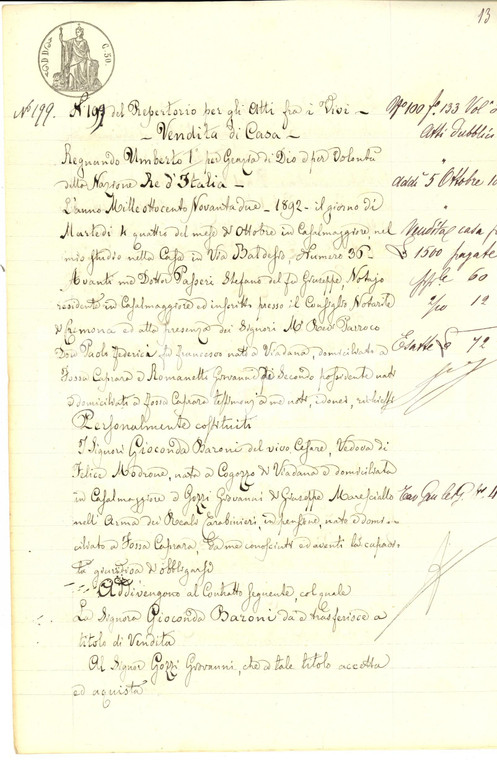 13
C. 50
Nº 199.
Nº 199 del Repertorio per gli Atti fra i Vivi –
– Vendita di Casa –
Regnando Umberto 1º per Grazia di Dio e per Volontà
della Nazione Re d'Italia –
L'anno Mille ottocento Novantadue – 1892 – il giorno di
Martedi 4 quattro del mese di Ottobre in Casalmaggiore nel
mio studio nella Casa in Via Baldesio, Numero 36 –
Avanti me Dottor Passeri Stefano del fu Giuseppe Notajo
residente in Casalmaggiore ed inscritto presso il Consiglio Notarile
di Cremona ed alla presenza dei Signori Mº Revdo Parroco
Don Paolo Federici fu Francesco nato a Viadana, domiciliato a
Fossa Caprara e Romanetti Giovanni di Secondo possidente nato
e domiciliato a Fossa Caprara testimonj a me noti, idonei, richiesti
Personalmente costituiti
I Signori Gioconda Baroni del vivo Cesare, Vedova di
Felice Modrone, nata a Cogozzo di Viadana e domiciliata
in Casalmaggiore e Gozzi Giovanni di Giuseppe Maresciallo
nell'Arma dei Reali Carabinieri, in pensione, nato e domi-
ciliato a Fossa Caprara, da me conosciuti ed aventi la capaci-
tà giuridica di obbligarsi
Addivengono al Contratto seguente, col quale
La Signora Gioconda Baroni da e trasferisce a
titolo di Vendita
Al Signor Gozzi Giovanni, che a tale titolo accetta
ed acquista
Nº 100 fº 133 Vol
Atti Pubblici
addi 5 Ottobre
Vendita casa
£ 1500 pagate
60
12
Esatte £ 72